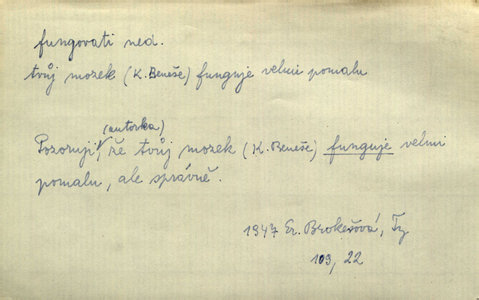 fungovati ned.
tvůj mozek (K. Beneše) funguje velmi pomalu
(autorka)
Pozoruji, že tvůj mozek (K. Beneše) funguje velmi
pomalu, ale správně.
1947 Er. Brokešová, Ty
109, 22